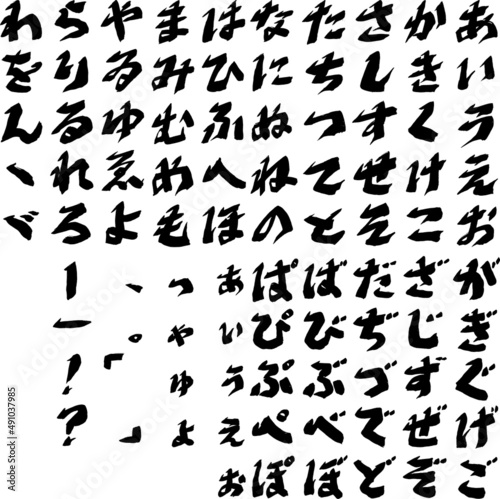 あいうえお
かきくけこ
さしすせそ
たちつてと
なにぬねの
はひふへほ
まみむめも
やゐゆゑよ
らりるれろ
わをんゝゞ
がぎぐげご
ざじずぜぞ
だぢづでど
ばびぶべぼ
ぱぴぷぺぽ
ぁぃぅぇぉ
っゃゅょ
、。「」
ーー！？
Adobe Stock | #491037985